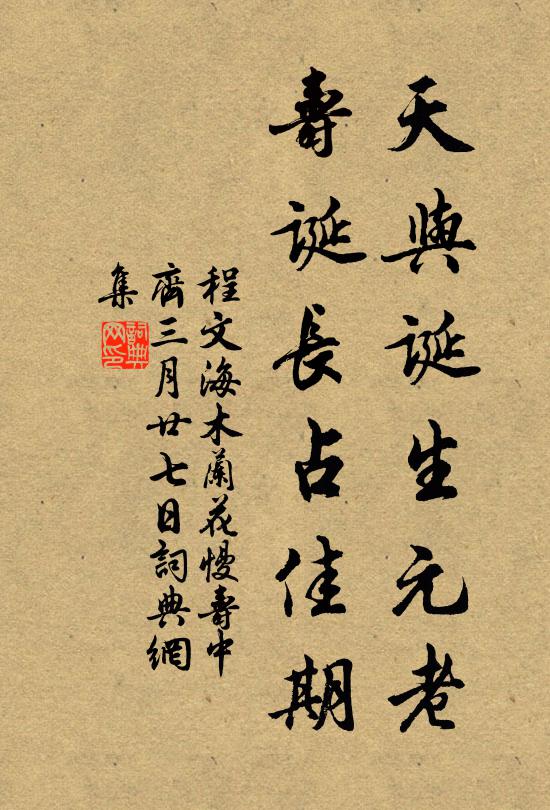 天與誕生元老
壽誕長占佳期
程文海木蘭花慢壽中
齊三月廿七日詞典網
集
詞典網印